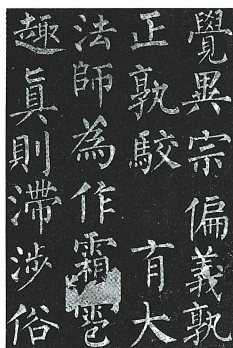 覺異宗偏義孰
正孰駮 有大
法師為作霜雹
趣真則滯涉俗